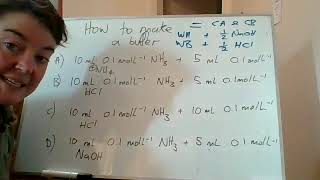 How to make
a buffer
= CA & CB
WA + 1/2 NaOH
WB + 1/2 HCl
A) 10 mL 0.1 molL⁻¹ NH₃ + 5 mL 0.1 molL⁻¹
NH₄⁺
B) 10 mL 0.1 molL⁻¹ NH₃ + 5 mL 0.1 molL⁻¹
HCl
C) 10 mL 0.1 molL⁻¹ NH₃ + 10 mL 0.1 molL⁻¹
HCl
D) 10 mL 0.1 molL⁻¹ NH₃ + 5 mL 0.1 molL⁻¹
NaOH